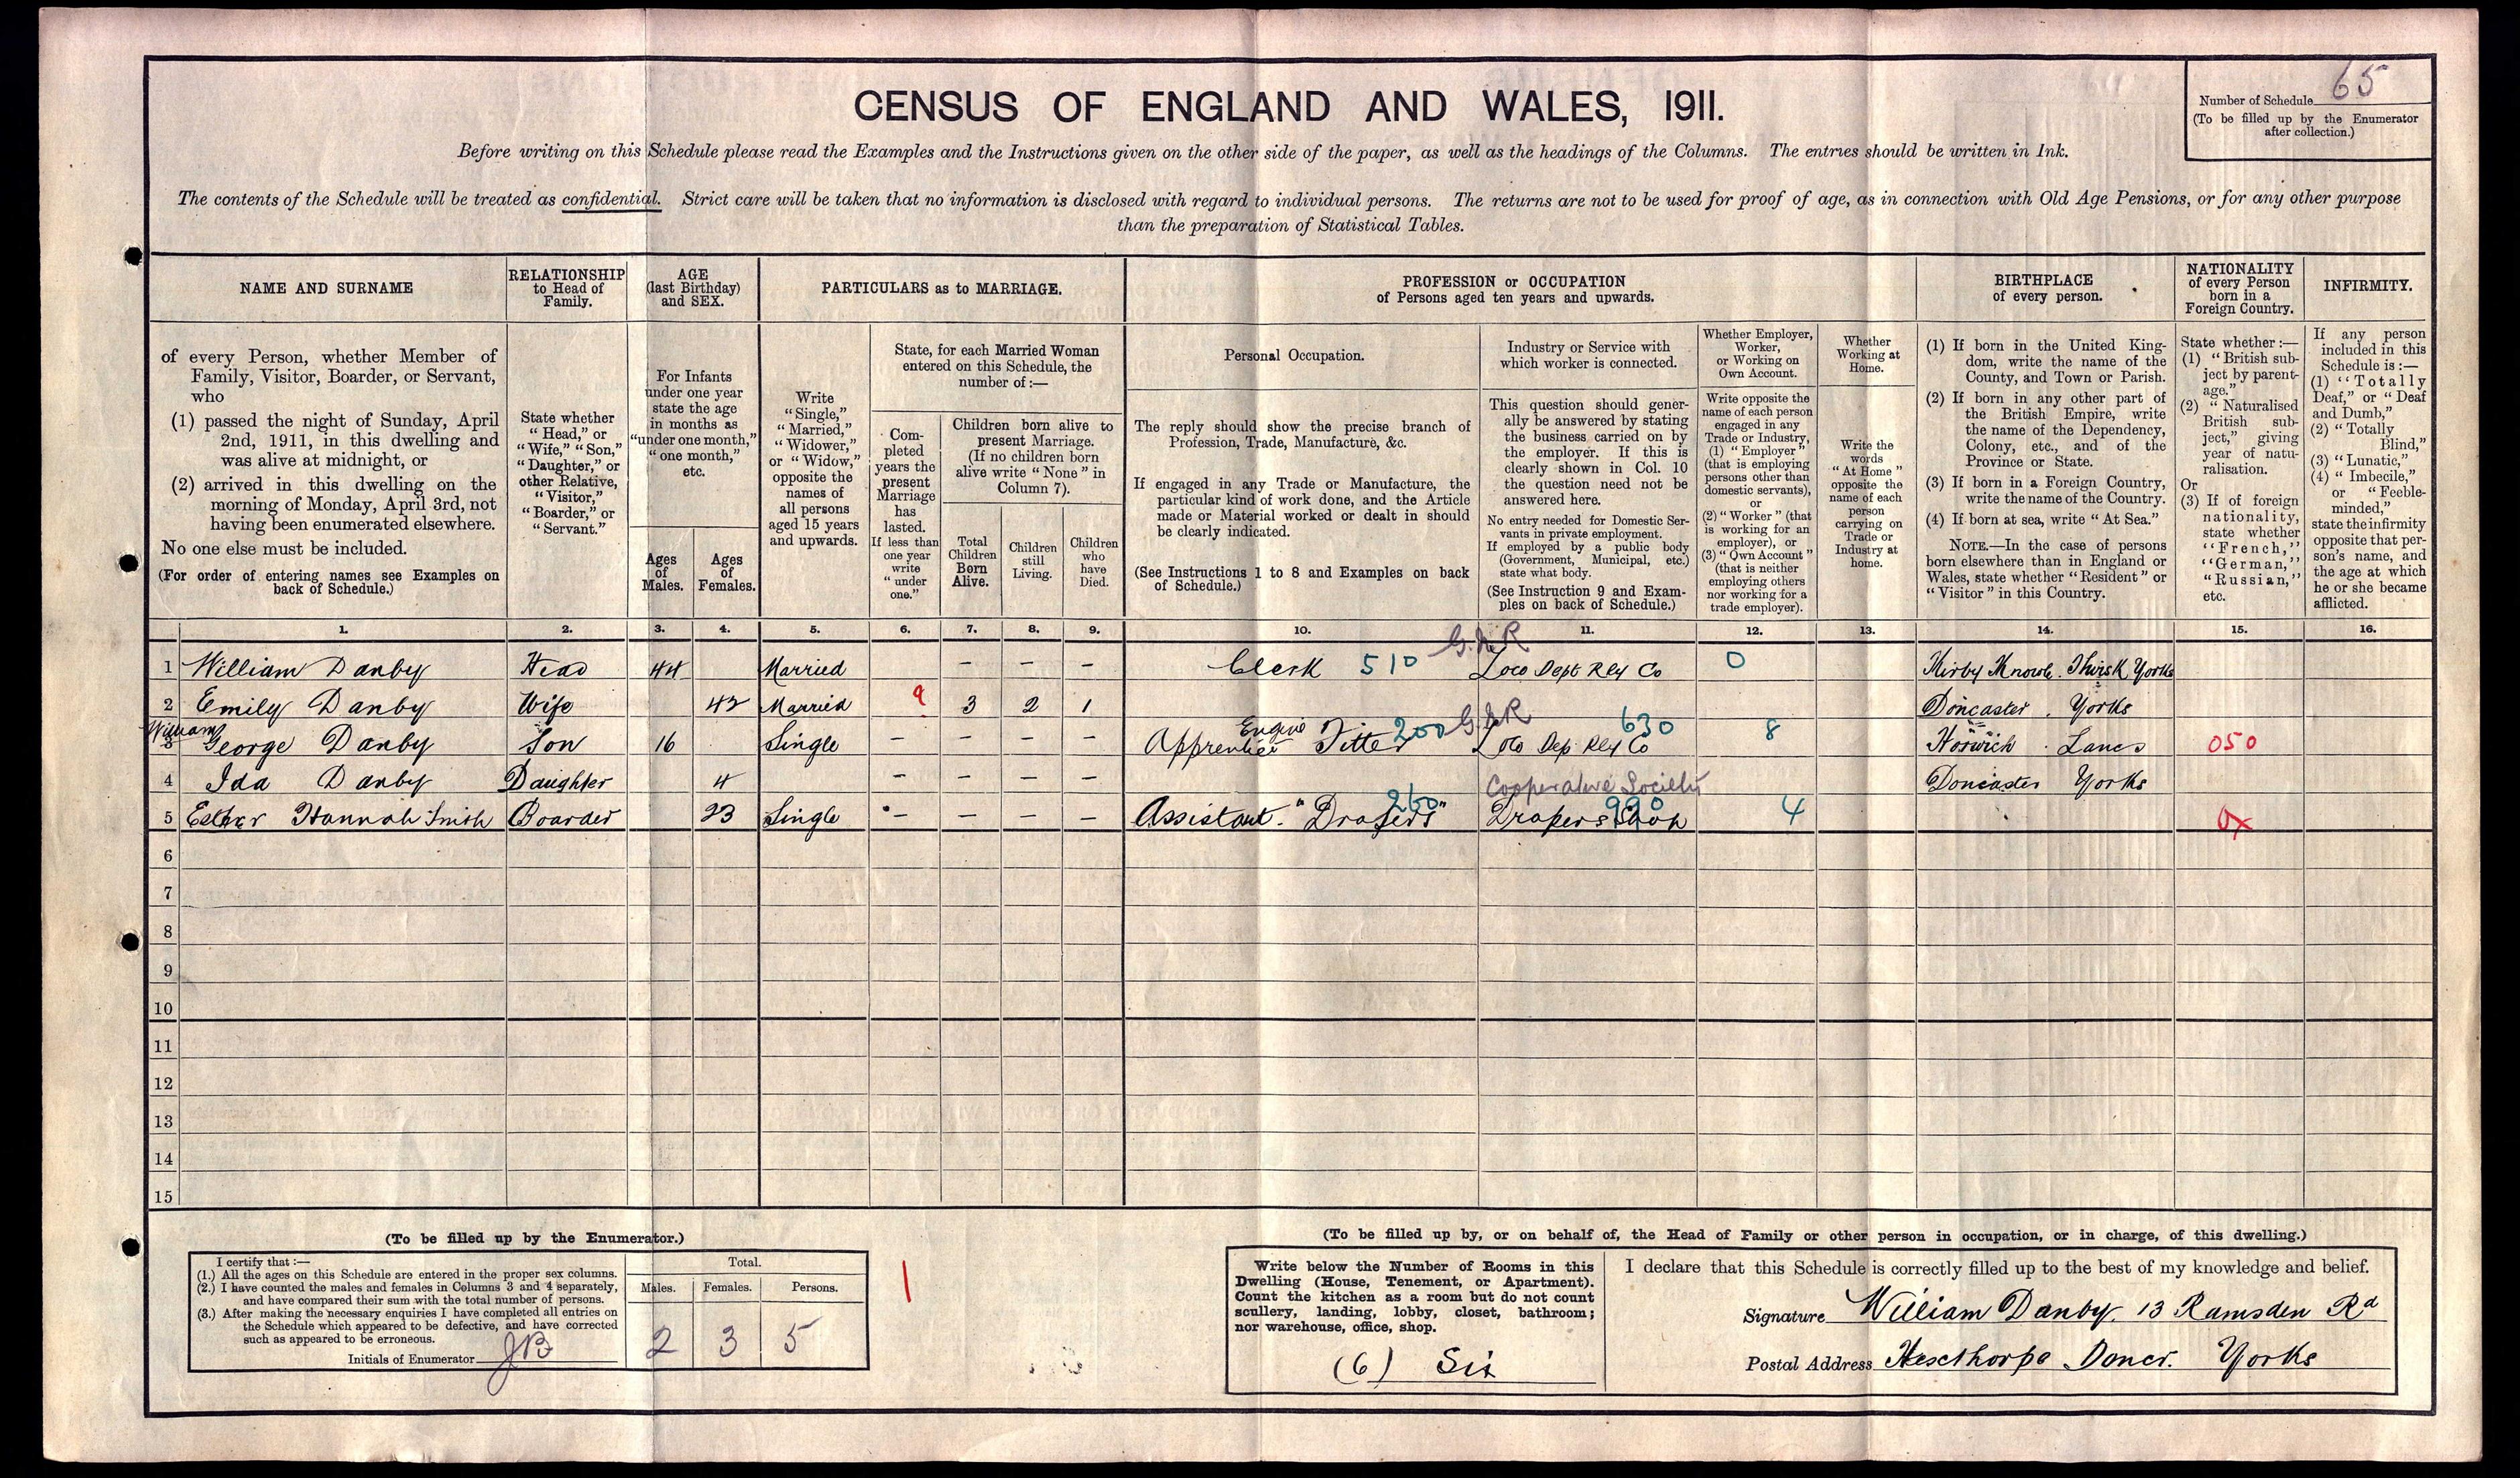 65
Number of Schedule
(To be filled up by the Enumerator
after collection.)
CENSUS OF ENGLAND AND WALES, 1911.
Before writing on this Schedule please read the Examples and the Instructions given on the other side of the paper, as well as the headings of the Columns. The entries should be written in Ink.
The contents of the Schedule will be treated as confidential. Strict care will be taken that no information is disclosed with regard to individual persons. The returns are not to be used for proof of age, as in connection with Old Age Pensions, or for any other purpose
than the preparation of Statistical Tables.
NAME AND SURNAME
of every Person, whether Member of
Family, Visitor, Boarder, or Servant,
who
(1) passed the night of Sunday, April
2nd, 1911, in this dwelling and
was alive at midnight, or
(2) arrived in this dwelling on the
morning of Monday, April 3rd, not
having been enumerated elsewhere.
No one else must be included.
(For order of entering names see Examples on
back of Schedule.)
RELATIONSHIP
to Head of
Family.
State whether
"Head," or
"Wife," "Son,"
"Daughter," or
other Relative,
"Visitor,"
"Boarder," or
"Servant."
AGE
(last Birthday)
and SEX.
For Infants
under one year
state the age
in months as
"under one month,"
"one month,"
etc.
Ages
of
Males.
Ages
of
Females.
PARTICULARS as to MARRIAGE.
Write
"Single,"
"Married,"
"Widower,"
or "Widow,"
opposite the
names of
all persons
aged 15 years
and upwards.
State, for each Married Woman
entered on this Schedule, the
number of:—
Com-
pleted
years the
present
Marriage
has
lasted.
If less than
one year
write
"under
one."
Children born alive to
present Marriage.
(If no children born
alive write "None" in
Column 7).
Total
Children
Born
Alive.
Children
still
Living.
Children
who
have
Died.
PROFESSION or OCCUPATION
of Persons aged ten years and upwards.
Personal Occupation.
The reply should show the precise branch of
Profession, Trade, Manufacture, &c.
If engaged in any Trade or Manufacture, the
particular kind of work done, and the Article
made or Material worked or dealt in should
be clearly indicated.
(See Instructions 1 to 8 and Examples on back
of Schedule.)
Industry or Service with
which worker is connected.
This question should gener-
ally be answered by stating
the business carried on by
the employer. If this is
clearly shown in Col. 10
the question need not be
answered here.
No entry needed for Domestic Ser-
vants in private employment.
If employed by a public body
(Government, Municipal, etc.)
state what body.
(See Instruction 9 and Exam-
ples on back of Schedule.)
Whether Employer,
Worker,
or Working on
Own Account.
Write opposite the
name of each person
engaged in any
Trade or Industry,
(1) "Employer"
(that is employing
persons other than
domestic servants),
or
(2) "Worker" (that
is working for an
employer), or
(3) "Own Account"
(that is neither
employing others
nor working for a
trade employer).
Whether
Working at
Home.
Write the
words
"At Home"
opposite the
name of each
person
carrying on
Trade or
Industry at
home.
BIRTHPLACE
of every person.
(1) If born in the United King-
dom, write the name of the
County, and Town or Parish.
(2) If born in any other part of
the British Empire, write
the name of the Dependency,
Colony, etc., and of the
Province or State.
(3) If born in a Foreign Country,
write the name of the Country.
(4) If born at sea, write "At Sea."
NOTE.—In the case of persons
born elsewhere than in England or
Wales, state whether "Resident" or
"Visitor" in this Country.
NATIONALITY
of every Person
born in a
Foreign Country.
State whether:—
(1) "British sub-
ject by parent-
age,"
(2) "Naturalised
British sub-
ject," giving
year of natu-
ralisation.
Or
(3) If of foreign
nationality,
state whether
"French,"
"German,"
"Russian,"
etc.
INFIRMITY.
If any person
included in this
Schedule is:—
(1) "Totally
Deaf," or "Deaf
and Dumb,"
(2) "Totally
Blind,"
(3) "Lunatic,"
(4) "Imbecile,"
or "Feeble-
minded,"
state the infirmity
opposite that per-
son's name, and
the age at which
he or she became
afflicted.
1. 2. 3. 4. 5. 6. 7. 8. 9. 10. 11. 12. 13. 14. 15. 16.
G.N.R
1 William Danby Head 44 Married — — — Clerk 510 Loco Dept Rly Co 0 Kirby Knowle. Thirsk Yorks
2 Emily Danby Wife 42 Married 9 3 2 1 Doncaster. Yorks
William Engine 200 G.N.R 630
3 George Danby Son 16 Single — — — — Apprentice Fitter Loco Dep Rly Co 8 Horwich. Lancs 050
4 Ida Danby Daughter 4 — — — Doncaster Yorks
Cooperative Society
260 990
5 Esther Hannah Smith Boarder 23 Single — — — — Assistant. "Drapers" Drapers Shop 4 0x
6
7
8
9
10
11
12
13
14
15
(To be filled up by the Enumerator.)
I certify that:—
(1.) All the ages on this Schedule are entered in the proper sex columns.
(2.) I have counted the males and females in Columns 3 and 4 separately,
and have compared their sum with the total number of persons.
(3.) After making the necessary enquiries I have completed all entries on
the Schedule which appeared to be defective, and have corrected
such as appeared to be erroneous.
Initials of Enumerator JB
Total.
Males. Females. Persons.
2 3 5
1
(To be filled up by, or on behalf of, the Head of Family or other person in occupation, or in charge, of this dwelling.)
Write below the Number of Rooms in this
Dwelling (House, Tenement, or Apartment).
Count the kitchen as a room but do not count
scullery, landing, lobby, closet, bathroom;
nor warehouse, office, shop.
(6) Six
I declare that this Schedule is correctly filled up to the best of my knowledge and belief.
Signature William Danby. 13 Ramsden Rd
Postal Address Hexthorpe Doncr. Yorks